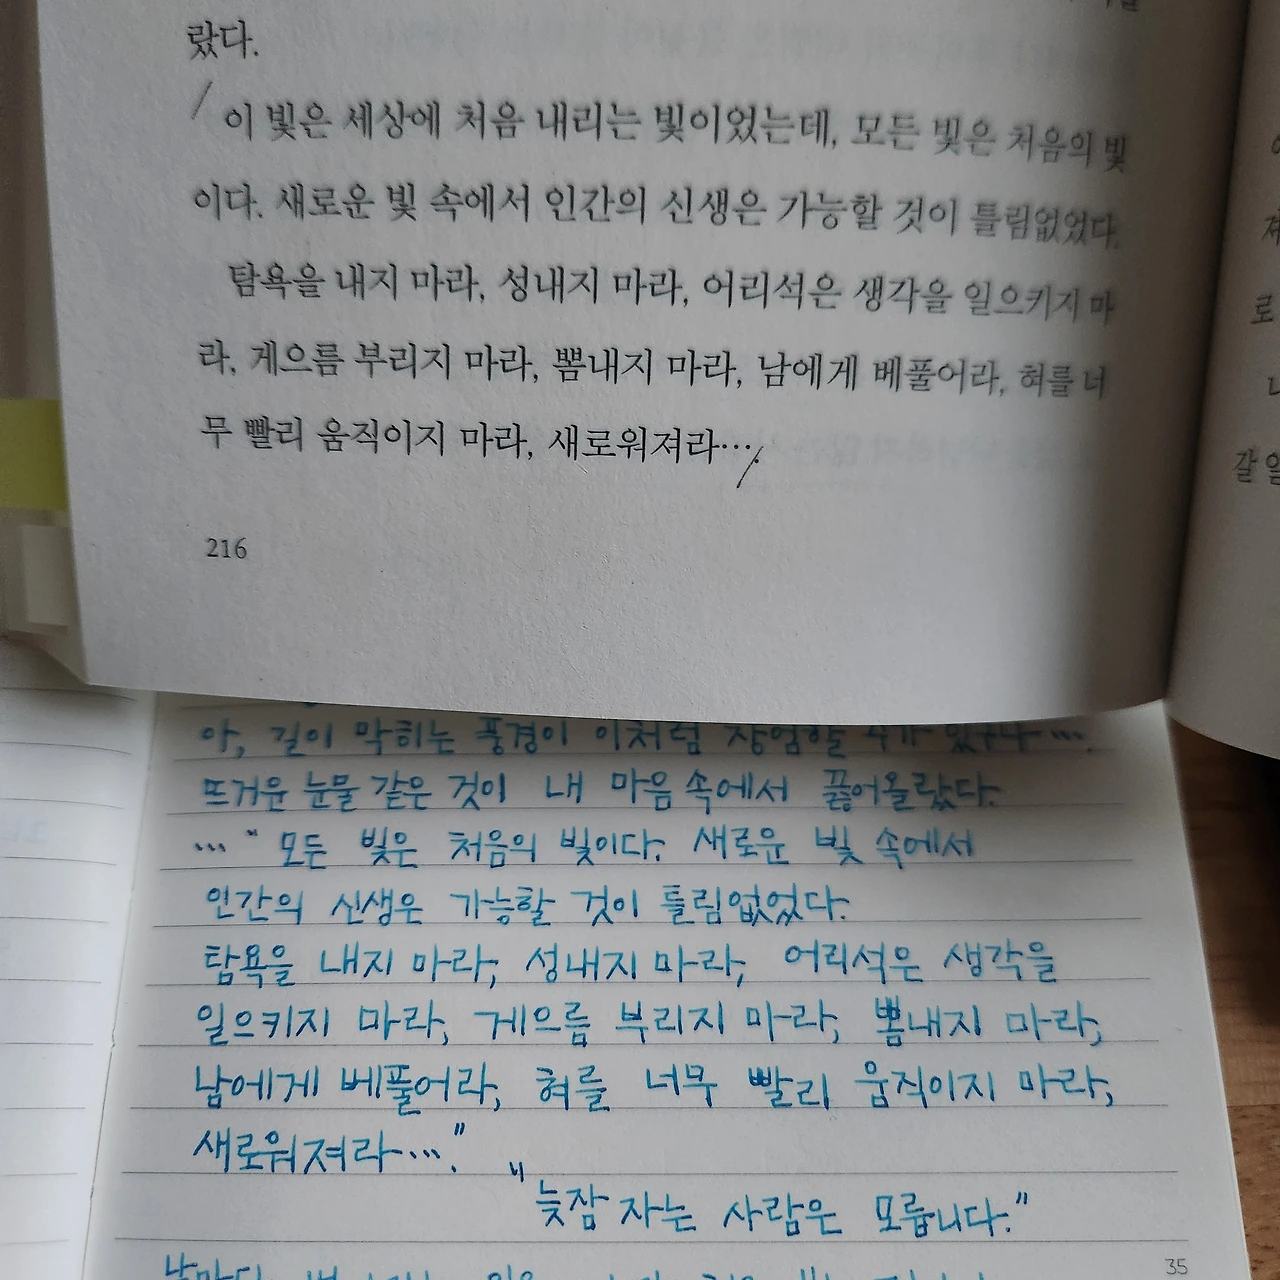 랐다.
이 빛은 세상에 처음 내리는 빛이었는데, 모든 빛은 처음의 빛
이다. 새로운 빛 속에서 인간의 신생은 가능할 것이 틀림없었다.
탐욕을 내지 마라, 성내지 마라, 어리석은 생각을 일으키지 마
라, 게으름 부리지 마라, 뽐내지 마라, 남에게 베풀어라, 혀를 너
무 빨리 움직이지 마라, 새로워져라….
216
로
갈
아, 길이 막히는 풍경이 이처럼 장엄할 수가 있구나….
뜨거운 눈물 같은 것이 내 마음 속에서 끓어올랐다.
…" 모든 빛은 처음의 빛이다. 새로운 빛 속에서
인간의 신생은 가능할 것이 틀림없었다.
탐욕을 내지 마라, 성내지 마라, 어리석은 생각을
일으키지 마라, 게으름 부리지 마라, 뽐내지 마라,
남에게 베풀어라, 혀를 너무 빨리 움직이지 마라,
새로워져라…."
"늦잠 자는 사람은 모릅니다."
35